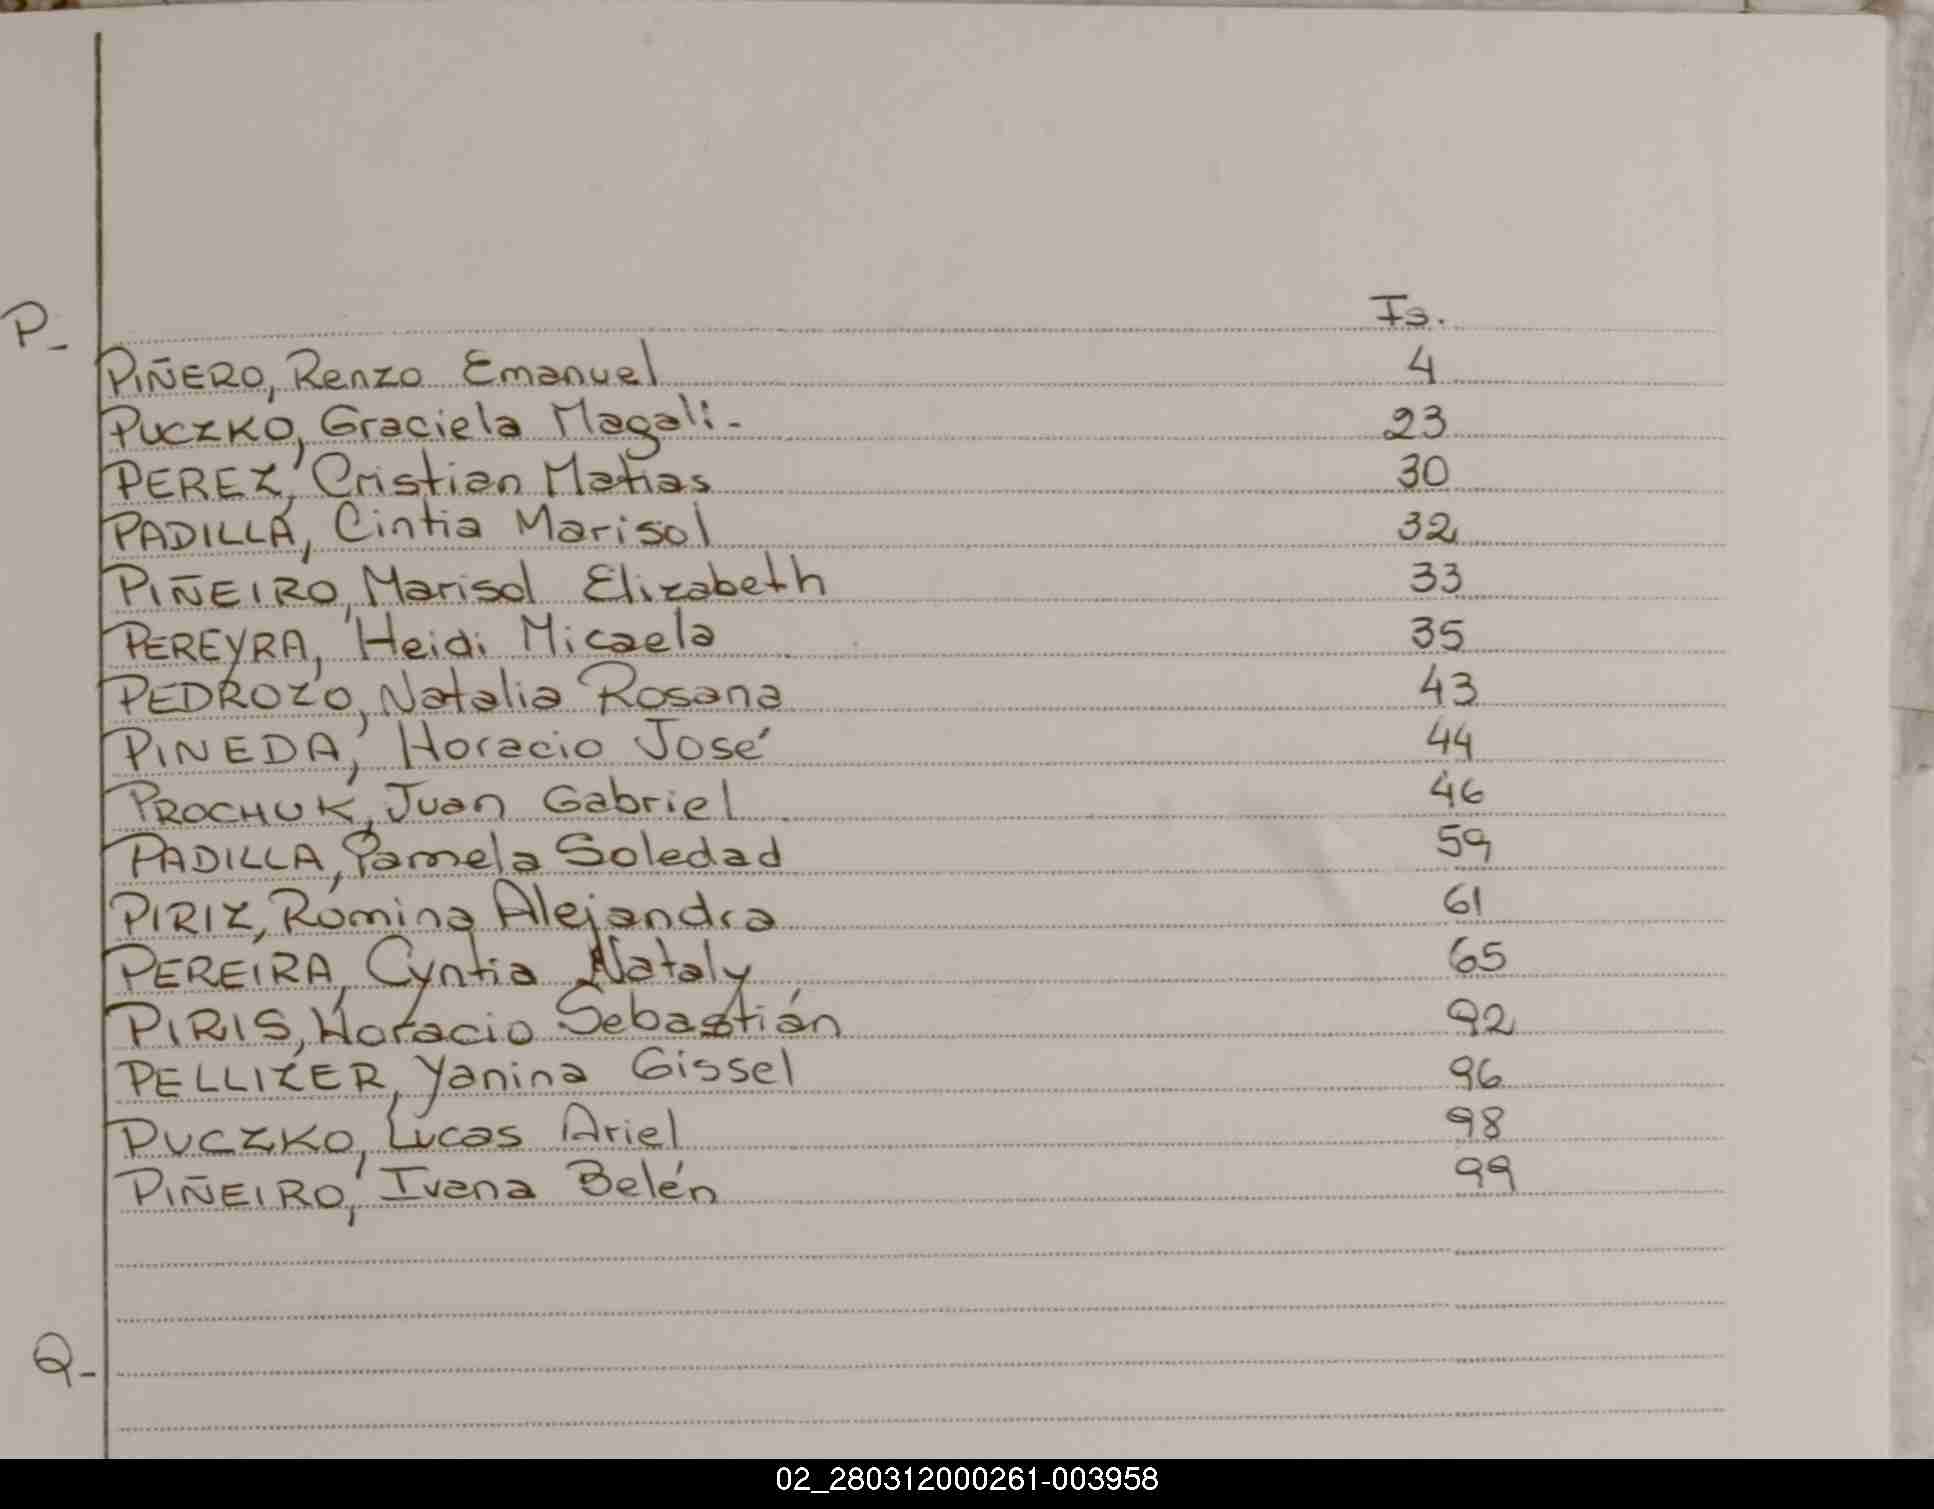 P- Fs.
PIÑERO, Renzo Emanuel 4
PUCZKO, Graciela Magali- 23
PEREZ, Cristian Matias 30
PADILLA, Cintia Marisol 32
PIÑEIRO, Marisol Elizabeth 33
PEREYRA, Heidi Micaela 35
PEDROZO, Natalia Rosana 43
PINEDA, Horacio José 44
PROCHUK, Juan Gabriel 46
PADILLA, Pamela Soledad 59
PIRIZ, Romina Alejandra 61
PEREIRA, Cyntia Nataly 65
PIRIS, Horacio Sebastián 92
PELLIZER, Yanina Gissel 96
PUCZKO, Lucas Ariel 98
PIÑEIRO, Ivana Belén 99
Q-
02_280312000261-003958